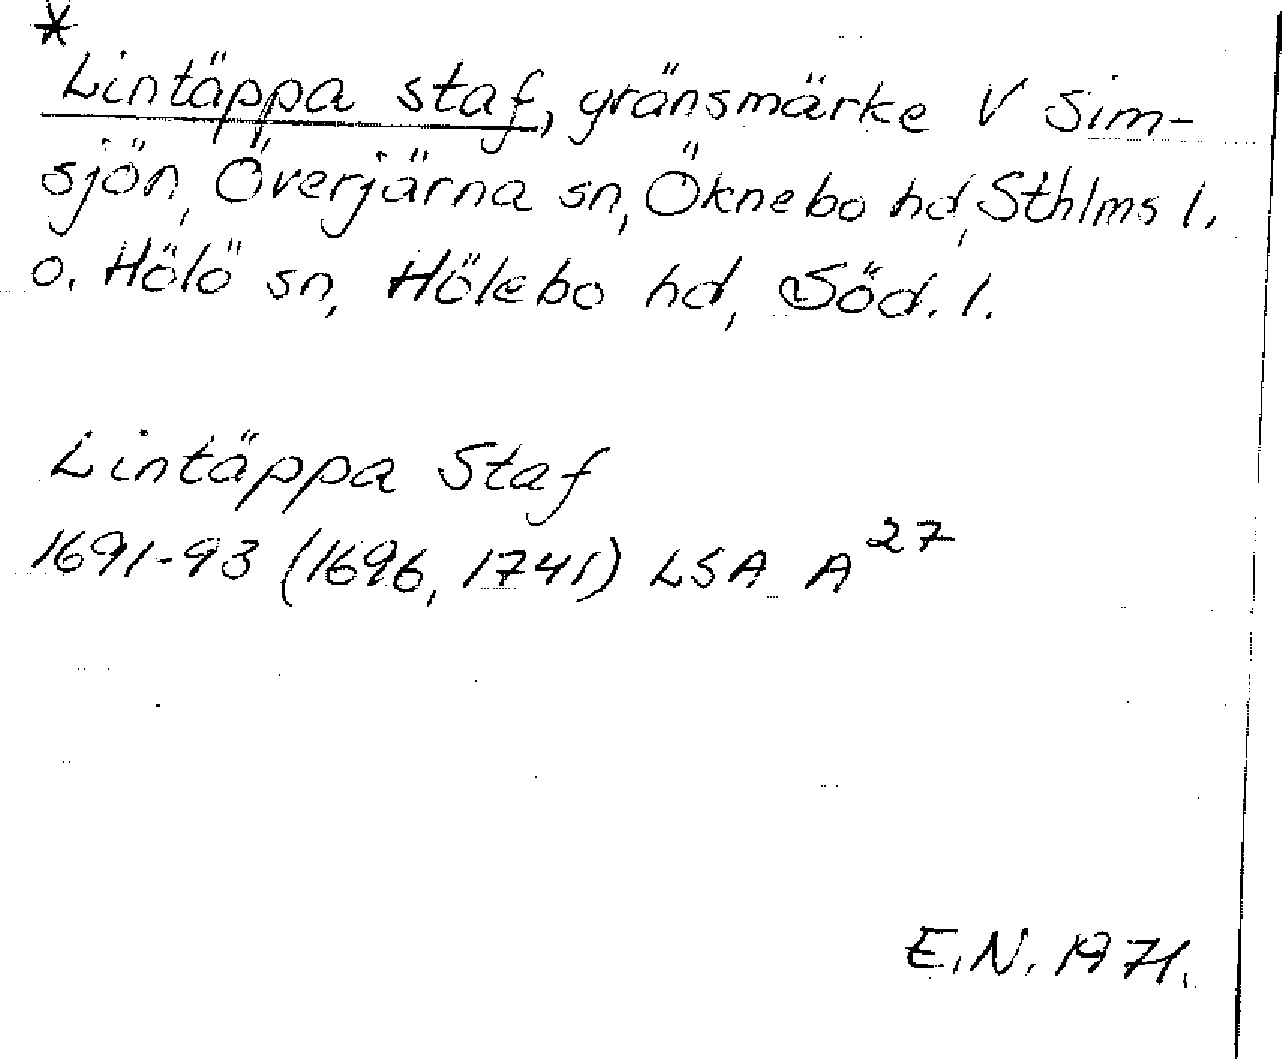 *
Lintäppa staf, gränsmärke V Sim-
sjön, Överjärna sn, Öknebo hd, Sthlms l.
o. Hölö sn, Hölebo hd, Söd. l.
Lintäppa Staf
1691-93 (1696, 1741) LSA A²⁷
E.N. 1971.